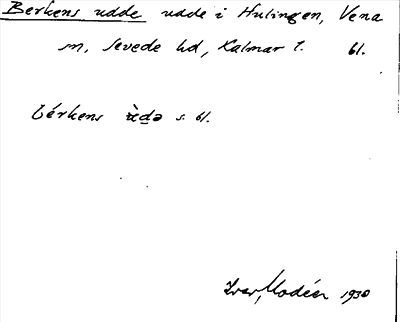 Berkens udde udde i Hulingen, Vena
sn, Sevede hd, Kalmar l. bl.
bérkens ùdə s. bl.
Ivar Modéer 1930